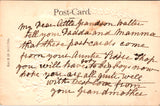 Post-Card.
My dear little grandson, Walter
tell you, Dadda and Mamma
that this postcards come
from your Auntie Rose. I hope
you will have to happy now
hope you are all quite well
with best love from
your grandmother